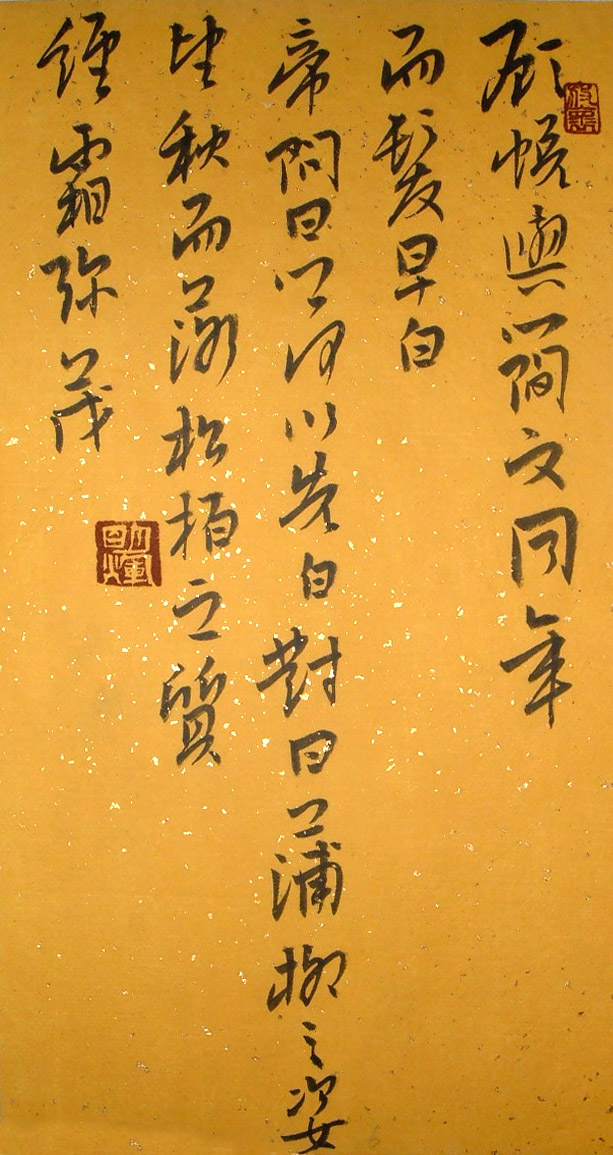 顧悅與簡文同年
而髮早白
帝問曰卿何以先白對曰蒲柳之姿
望秋而落松柏之質
經霜弥茂